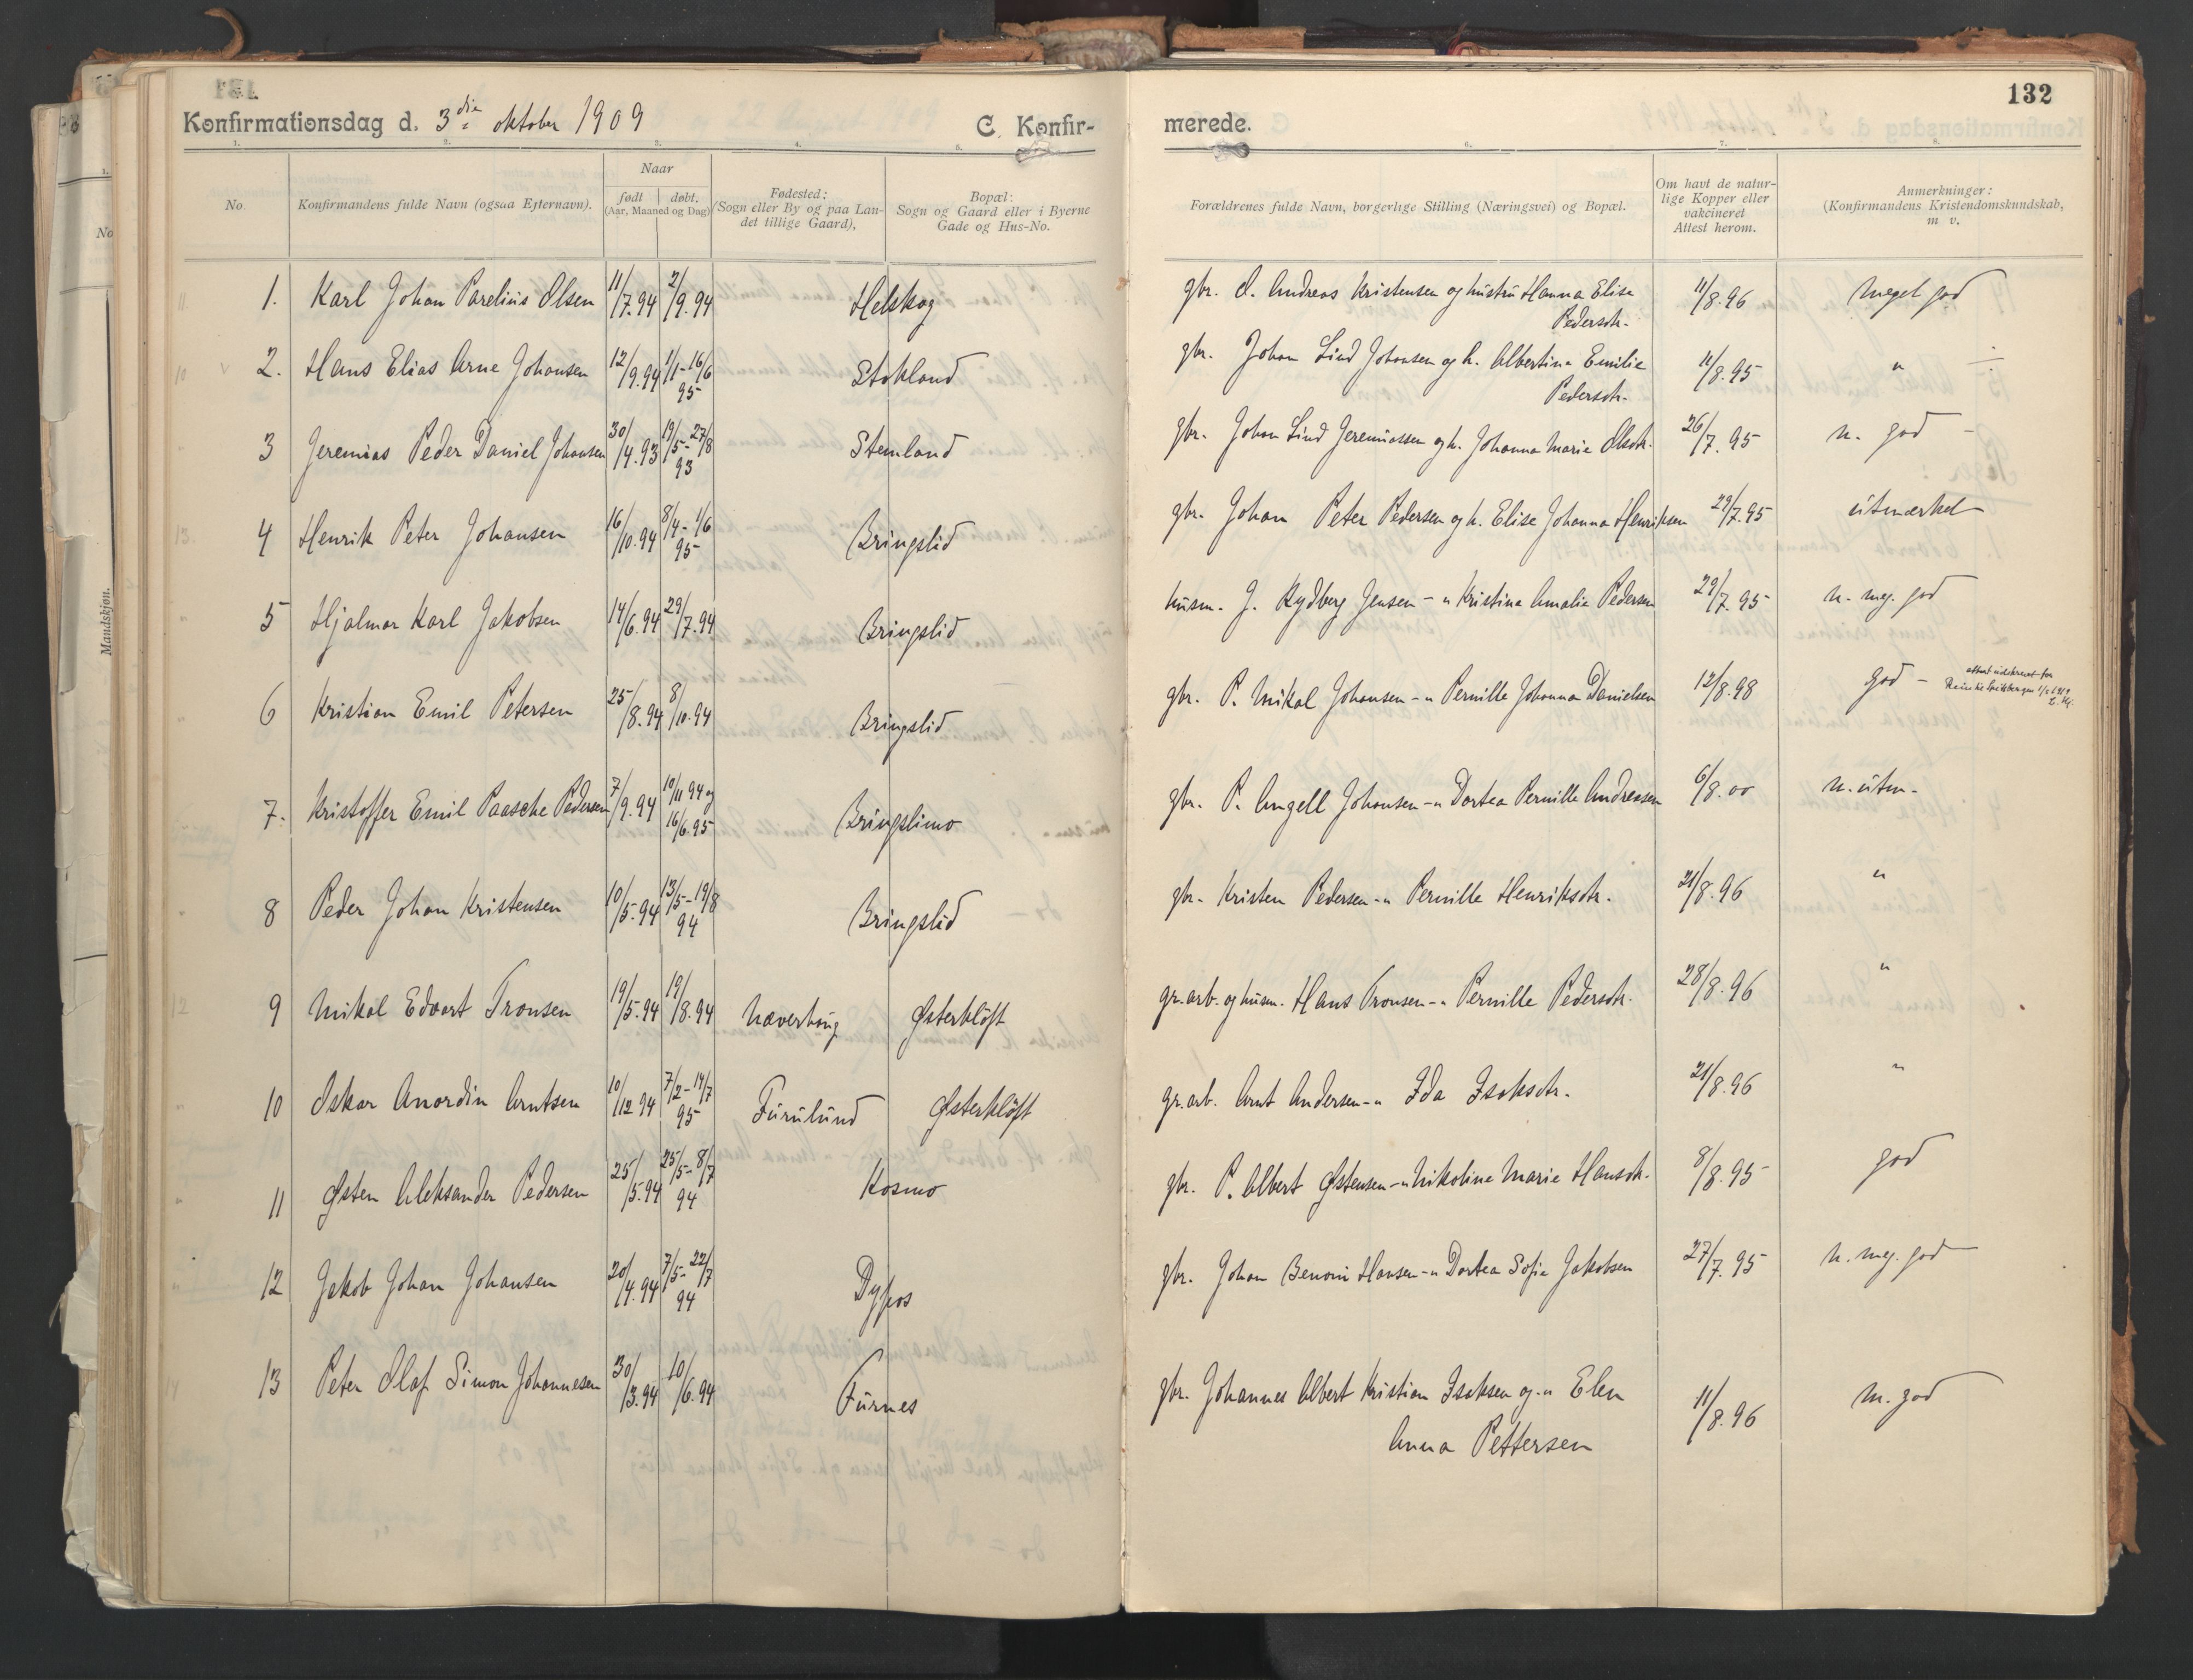 132
Konfirmationsdag d. 3die oktober 1909
C. Konfir-
merede.
1. 2. 3. 4. 5. 6. 7. 8.
No.
Konfirmandens fulde Navn (ogsaa Efternavn).
Naar
født døbt.
(Aar, Maaned og Dag)
Fødested:
(Sogn eller By og paa Lan-
det tillige Gaard),
Bopæl:
Sogn og Gaard eller i Byerne
Gade og Hus-No.
Forældrenes fulde Navn, borgerlige Stilling (Næringsvei) og Bopæl.
Om havt de natur-
lige Kopper eller
vakcineret
Attest herom.
Anmerkninger:
(Konfirmandens Kristendomskundskab,
m v.
No
Mandskjøn.
1. Karl Johan Parelius Olsen 11/7.94 2/9.94 Helskog gbr. O. Andreas Kristensen og hustru Hanna Elise 11/8.96 Meget god
Pedersdtr.
2. Hans Elias Arne Johansen 12/9.94 1/1-16/6 95 Stokland gbr. Johan Lind Johansen og h. Albertine Emilie 11/8.95 "
Pedersdtr.
3 Jeremias Peder Daniel Johansen 30/4.93 19/5-27/8 93 Stemland gbr. Johan Lind Jeremiassen og h. Johanna Marie Olsdtr. 26/7.95 n. god
4 Henrik Peter Johansen 16/10.94 8/4-1/6 95 Bringslid gbr. Johan Peter Pedersen og h. Elise Johanna Henriksen 29/7.95 utmærket
5 Hjalmar Karl Jakobsen 14/6.94 29/7.94 Bringslid husm. J. Rydberg Jensen - " Kristine Amalie Pedersen 29/7.95 n. meg. god
6 Kristian Emil Petersen 25/8.94 8/10.94 Bringslid gbr. P. Mikal Johansen - " Pernille Johanna Danielsen 12/8.98 god -
7. Kristoffer Emil Paasche Pedersen 7/9.94 10/11 94 og 16/6.95 Bringslimo gbr. P. Angell Johansen - " Dortea Pernille Andreassen 6/8.00 n. utm.
8 Peder Johan Kristensen 10/5.94 13/5-19/8 94 Bringslid gbr. Kristen Pedersen - " Pernille Henriksdtr. 21/8.96 "
9 Mikal Edvart Tronsen 19/5.94 19/8.94 Næverhaug Østerkløft gr.arb. og husm. Hans Tronsen - " Pernille Pedersdtr. 28/8.96 "
10 Oskar Anordin Arntsen 10/12 94 7/2-14/7 95 Furulund Østerkløft gr.arb. Arnt Andersen - " Ida Isaksdtr. 21/8.96 "
11 Østen Aleksander Pedersen 25/5.94 25/5-8/7 94 Kosmo gbr. P. Albert Østensen - " Nikoline Marie Hansdtr. 8/8.95 god
12 Jakob Johan Johansen 20/4.94 7/5-22/7 94 Dypos gbr. Johan Benoni Hansen - " Dortea Sofie Jakobsen 27/7.95 n. meg. god
13 Peter Olaf Simon Johannesen 30/3.94 10/6.94 Furnes gbr. Johannes Albert Kristian Isaksen og - " Elen 11/8.96 m. god
Anna Pettersen